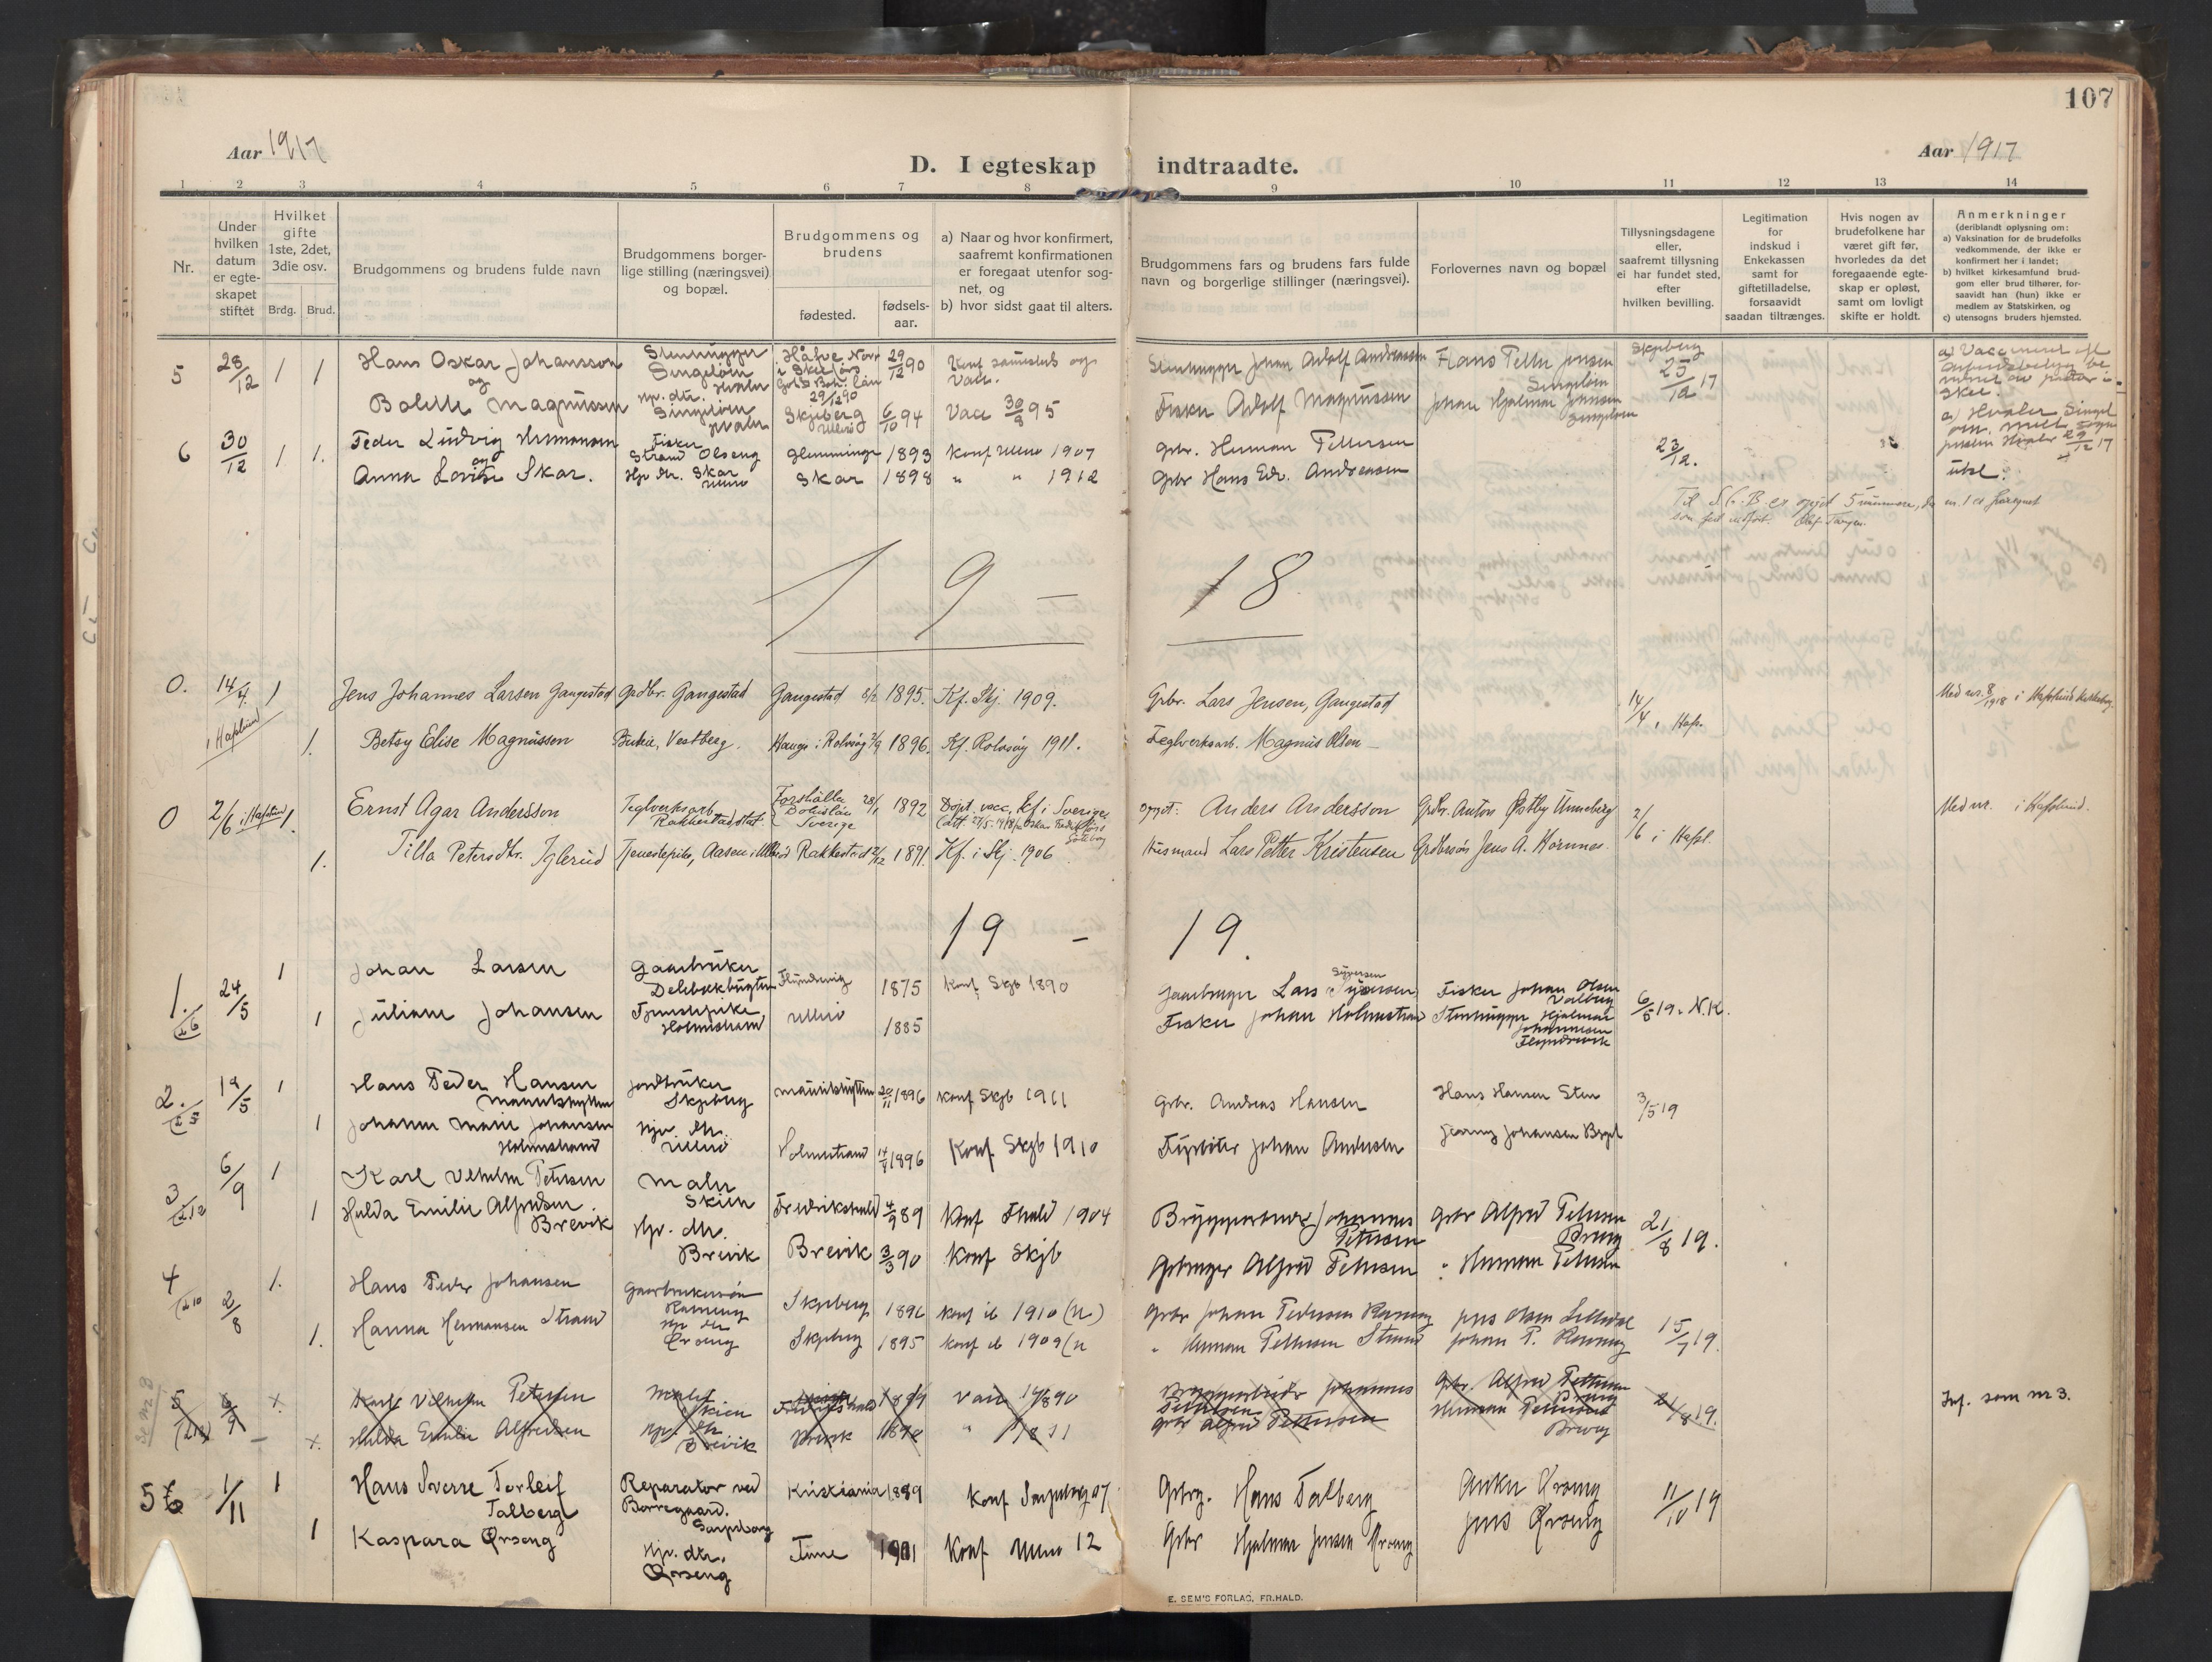 107
Aar 1917
D. I egteskap indtraadte.
Aar 1917
1 2 3 4 5 6 7 8 9 10 11 12 13 14
Nr.
Under hvilken datum er egteskapet stiftet
Hvilket gifte 1ste, 2det, 3die osv.
Brdg. Brud.
Brudgommens og brudens fulde navn
Brudgommens borgerlige stilling (næringsvei) og bopæl.
Brudgommens og brudens
fødested.
fødselsaar.
a) Naar og hvor konfirmert, saafremt konfirmationen er foregaat utenfor sognet, og
b) hvor sidst gaat til alters.
Brudgommens fars og brudens fars fulde navn og borgerlige stillinger (næringsvei).
Forlovernes navn og bopæl
Tillysningsdagene eller, saafremt tillysning ei har fundet sted, efter hvilken bevilling.
Legitimation for indskud i Enkekassen samt for giftetilladelse, forsaavidt saadan tiltrænges.
Hvis nogen av brudefolkene har været gift før, hvorledes da det foregaaende egteskap er opløst, samt om lovligt skifte er holdt.
Anmerkninger (deriblandt oplysning om:
a) Vaksination for de brudefolks vedkommende, der ikke er konfirmert her i landet;
b) hvilket kirkesamfund brudgom eller brud tilhører, forsaavidt han (hun) ikke er medlem av Statskirken, og
c) utensogns bruders hjemsted.
5 28/12 1 1 Hans Oskar Johansson Stenhugger Singeløen Hvaler 29/12 90 Stenhugger Johan Adolf Andreassen Hans Petter Jensen Singeløen Skjeberg 25/12 17
og
Bolette Magnussen Hp. dtr. Singeløen Hvaler Skjeberg Ullerø 6/10 94 Vacc 30/9 95 Fisker Adolf Magnussen Johan Hjalmar Jensen Singeløen
6 30/12 1 1. Peder Ludvig Hermansen Fisker Strand Ørseng Glemminge 1893 Konf Ullerø 1907 Gbr. Herman Pettersen 23/12.
og
Anna Lovise Skar. Hp dtr. Skar Ullerø Skar 1898 " " 1912 Gbr Hans Edv. Andreassen
19 — 18
0. 14/4 i Hafslund 1 Jens Johannes Larsen Gangestad Grdbr. Gangestad Gangestad 8/2 1895. Kf. Skj. 1909. Grbr. Lars Jensen, Gangestad 14/4 i Hafs. Med nr. 8/1918 i Hafslund
1. Betsy Elise Magnussen Vestberg. Hauge i Rolvsøy 2/9 1896. Kf. Rolvsøy 1911. Teglverksarb. Magnus Olsen
0 2/6 i Hafslund 1. Ernst Agar Andersson Teglverksarb. Rakkestad stat. Forshälla Bohuslän Sverige 28/1 1892 Døpt, vacc, Kf i Sverige opgit: Anders Andersson Grdbr. Anton Østby Ünneberg 2/6 i Hafsl. Med nr. i Hafslund.
1. Tilla Petersdtr. Iglerud Tjenestepike, Aasen i Ullerø Rakkestad 2/12 1891 Kf. i Skj. 1906 Husmand Lars Petter Kristensen Grdbrsøn Jens A. Hornnes
19 — 19.
1. 24/5 1 Johan Larsen Gaarbruker Delebækbugten Flyndrevig 1875 Konf Skjb 1890 Gaarbruger Lars Syversen Fisker Johan Olsen Valberg 6/5 19. N.K.
1 Juliane Johansen Tjenestepike, Holmestrand Ullerø 1885 Fisker Johan Holmestrand Stenhugger Hjalmar Johannesen Flyndrevik
2. 19/5 1 Hans Peder Hansen Mauritshytten Jordbruker Skjeberg Mauritshytten 20/11 1896 Konf Skjb 1911 Grbr. Andreas Hansen Hans Hansen Sten 3/5 19
1 Johanne Marie Johansen Holmestrand Hp dtr. Ullerø Holmestrand 1896 Konf Skjb 1910 Fyrbøter Johan Andersen Johansen
3 6/9 1 Karl Vilhelm Petersen Maler Skien Fredrikshald 4/9 89 Konf Fhald 1904 Bryggearbeider Johannes Petersen Grbr Alfred Petersen Ørseng 21/8 19.
1 Hulda Emilie Alfredsen. Brevik Hp. dtr. Brevik Brevik 3/3 90 Konf Skjb Grbruger Alfred Petersen " Herman Petersen
4 2/8 1. Hans Peder Johansen Gaarbrukersøn Skjeberg 1896 Konf ib 1910 (U) Grbr Johan Pedersen Jens Olsen 15/7 19.
1. Hanna Hermansen Strand Hp dtr Ørseng Skjeberg 1895 Konf ib 1909 (U " Herman Pettersen Strand Johan P.
Se nr 3 5 6/9 Karl Vilhelm Petersen Maler Skien Fredrikshald 1889 Vacc Bryggearbeider Johannes Petersen Gbr. Alfred Pettersen Ørseng 21/8 19. Inf. som nr 3.
Hulda Emilie Alfredsen Hp. dtr Brevik Brevik 1890 " Grbr Alfred Pettersen Herman Pettersen
5 6 1/11 1 Hans Sverre Torleif Talberg Reparatør ved Borregaard. Sarpsborg Kristiania 1889 Konf Sarpsborg 07 Grbrg. Hans Talberg Anker Ørseng 11/10 19
1 Kaspara Ørseng Hp. dtr. Ørseng Tune 1901 Konf Ullerø 12 Grbr Hjalmar Jensen Ørseng Jens Ørseng
E. SEM'S FORLAG, FR.HALD.